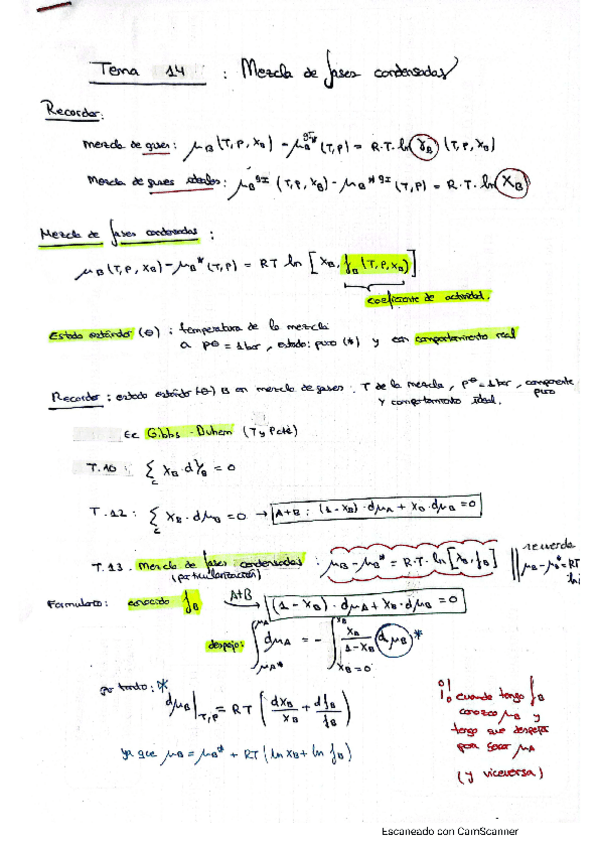 Tema 14 : Mezcla de fases condensadas
Recordar:
Mezcla de gases: μB (T, P, XB) - μB^gI* (T, P) = R.T. ln γB (T, P, XB)
Mezcla de gases ideales: μB^gI (T, P, XB) - μB^*gI (T, P) = R.T. ln XB
Mezcla de fases condensadas :
μB (T, P, XB) - μB* (T, P) = RT ln [XB. fB (T, P, XB)]
coeficiente de actividad.
Estado estándar (θ) : temperatura de la mezcla
a Pθ = 1 bar, estado: puro (*) y en comportamiento real
Recordar : estado estándar (θ) B en mezcla de gases : T de la mezcla, Pθ = 1 bar, componente puro
y comportamiento ideal.
Ec Gibbs - Duhem (T y P cte)
T.10 : Σc XB · dYB = 0
T.12 : Σc XB · dμB = 0 → A+B : (1 - XB) · dμA + XB · dμB = 0
T.13. Mezcla de fases condensadas : μB - μB* = R.T. ln [XB. fB] || recuerda
(particularización) μB - μB* = RT
Formulario: conocido fB A+B → (1 - XB) · dμA + XB · dμB = 0
despejo: ∫μA*^μA dμA = - ∫XB=0^XB XB/(1-XB) dμB *
por tanto: * dμB|T,P = RT (dXB/XB + dfB/fB)
ya que μB = μB* + RT (ln XB + ln fB)
cuando tengo fB
conozco μB y
tengo que despejar
para sacar μA
(y viceversa)
Escaneado con CamScanner